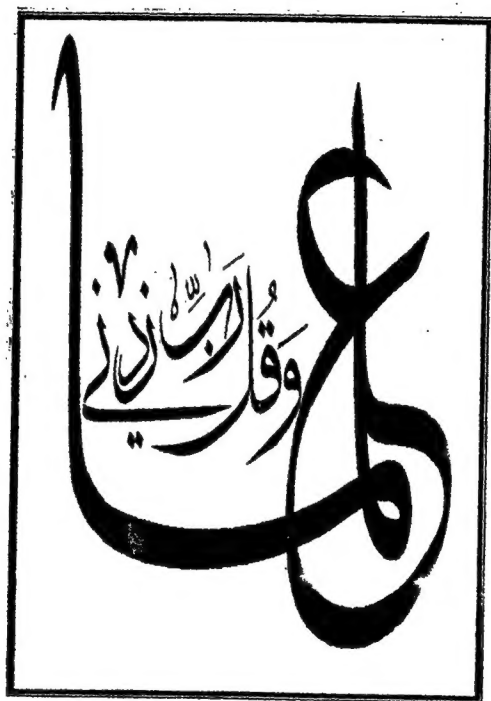 وَقُل رَّبِّ زِدْنِي علما